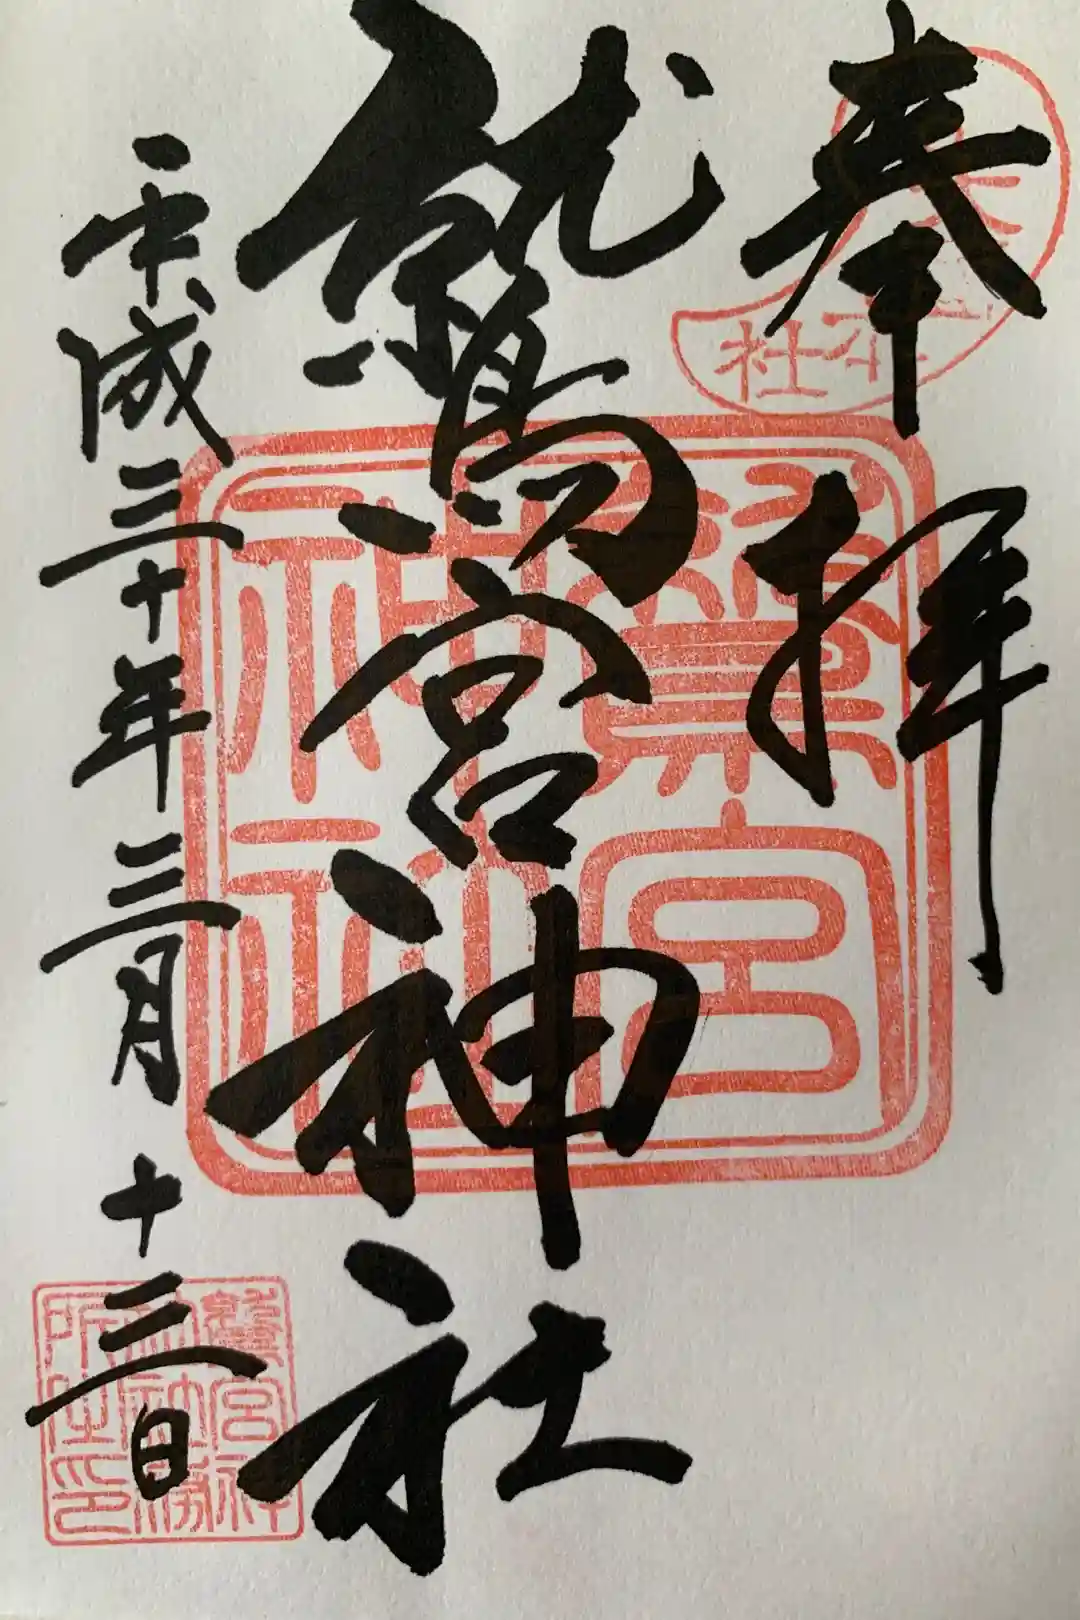 奉拝
鷲宮神社
平成三十年三月十三日
鷲宮
神社
鷲宮神
社社務
所之印